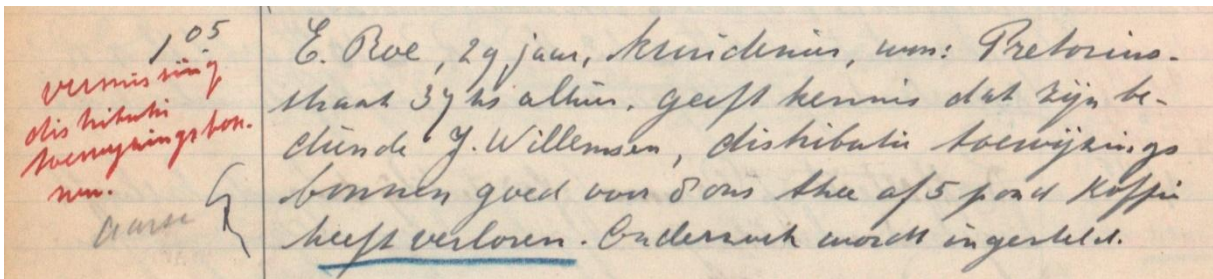 1 05
vermissing
distributie
toewijzingsbon-
nen.
E. Roe, 29 jaar, kruidenier, won: Pretorius-
straat 37 hs alhier. geeft kennis dat zijn be-
diende J. Willemsen, distributie toewijzings
bonnen goed voor 8 ons thee of 5 pond koffie
heeft verloren. Onderzoek wordt ingesteld.